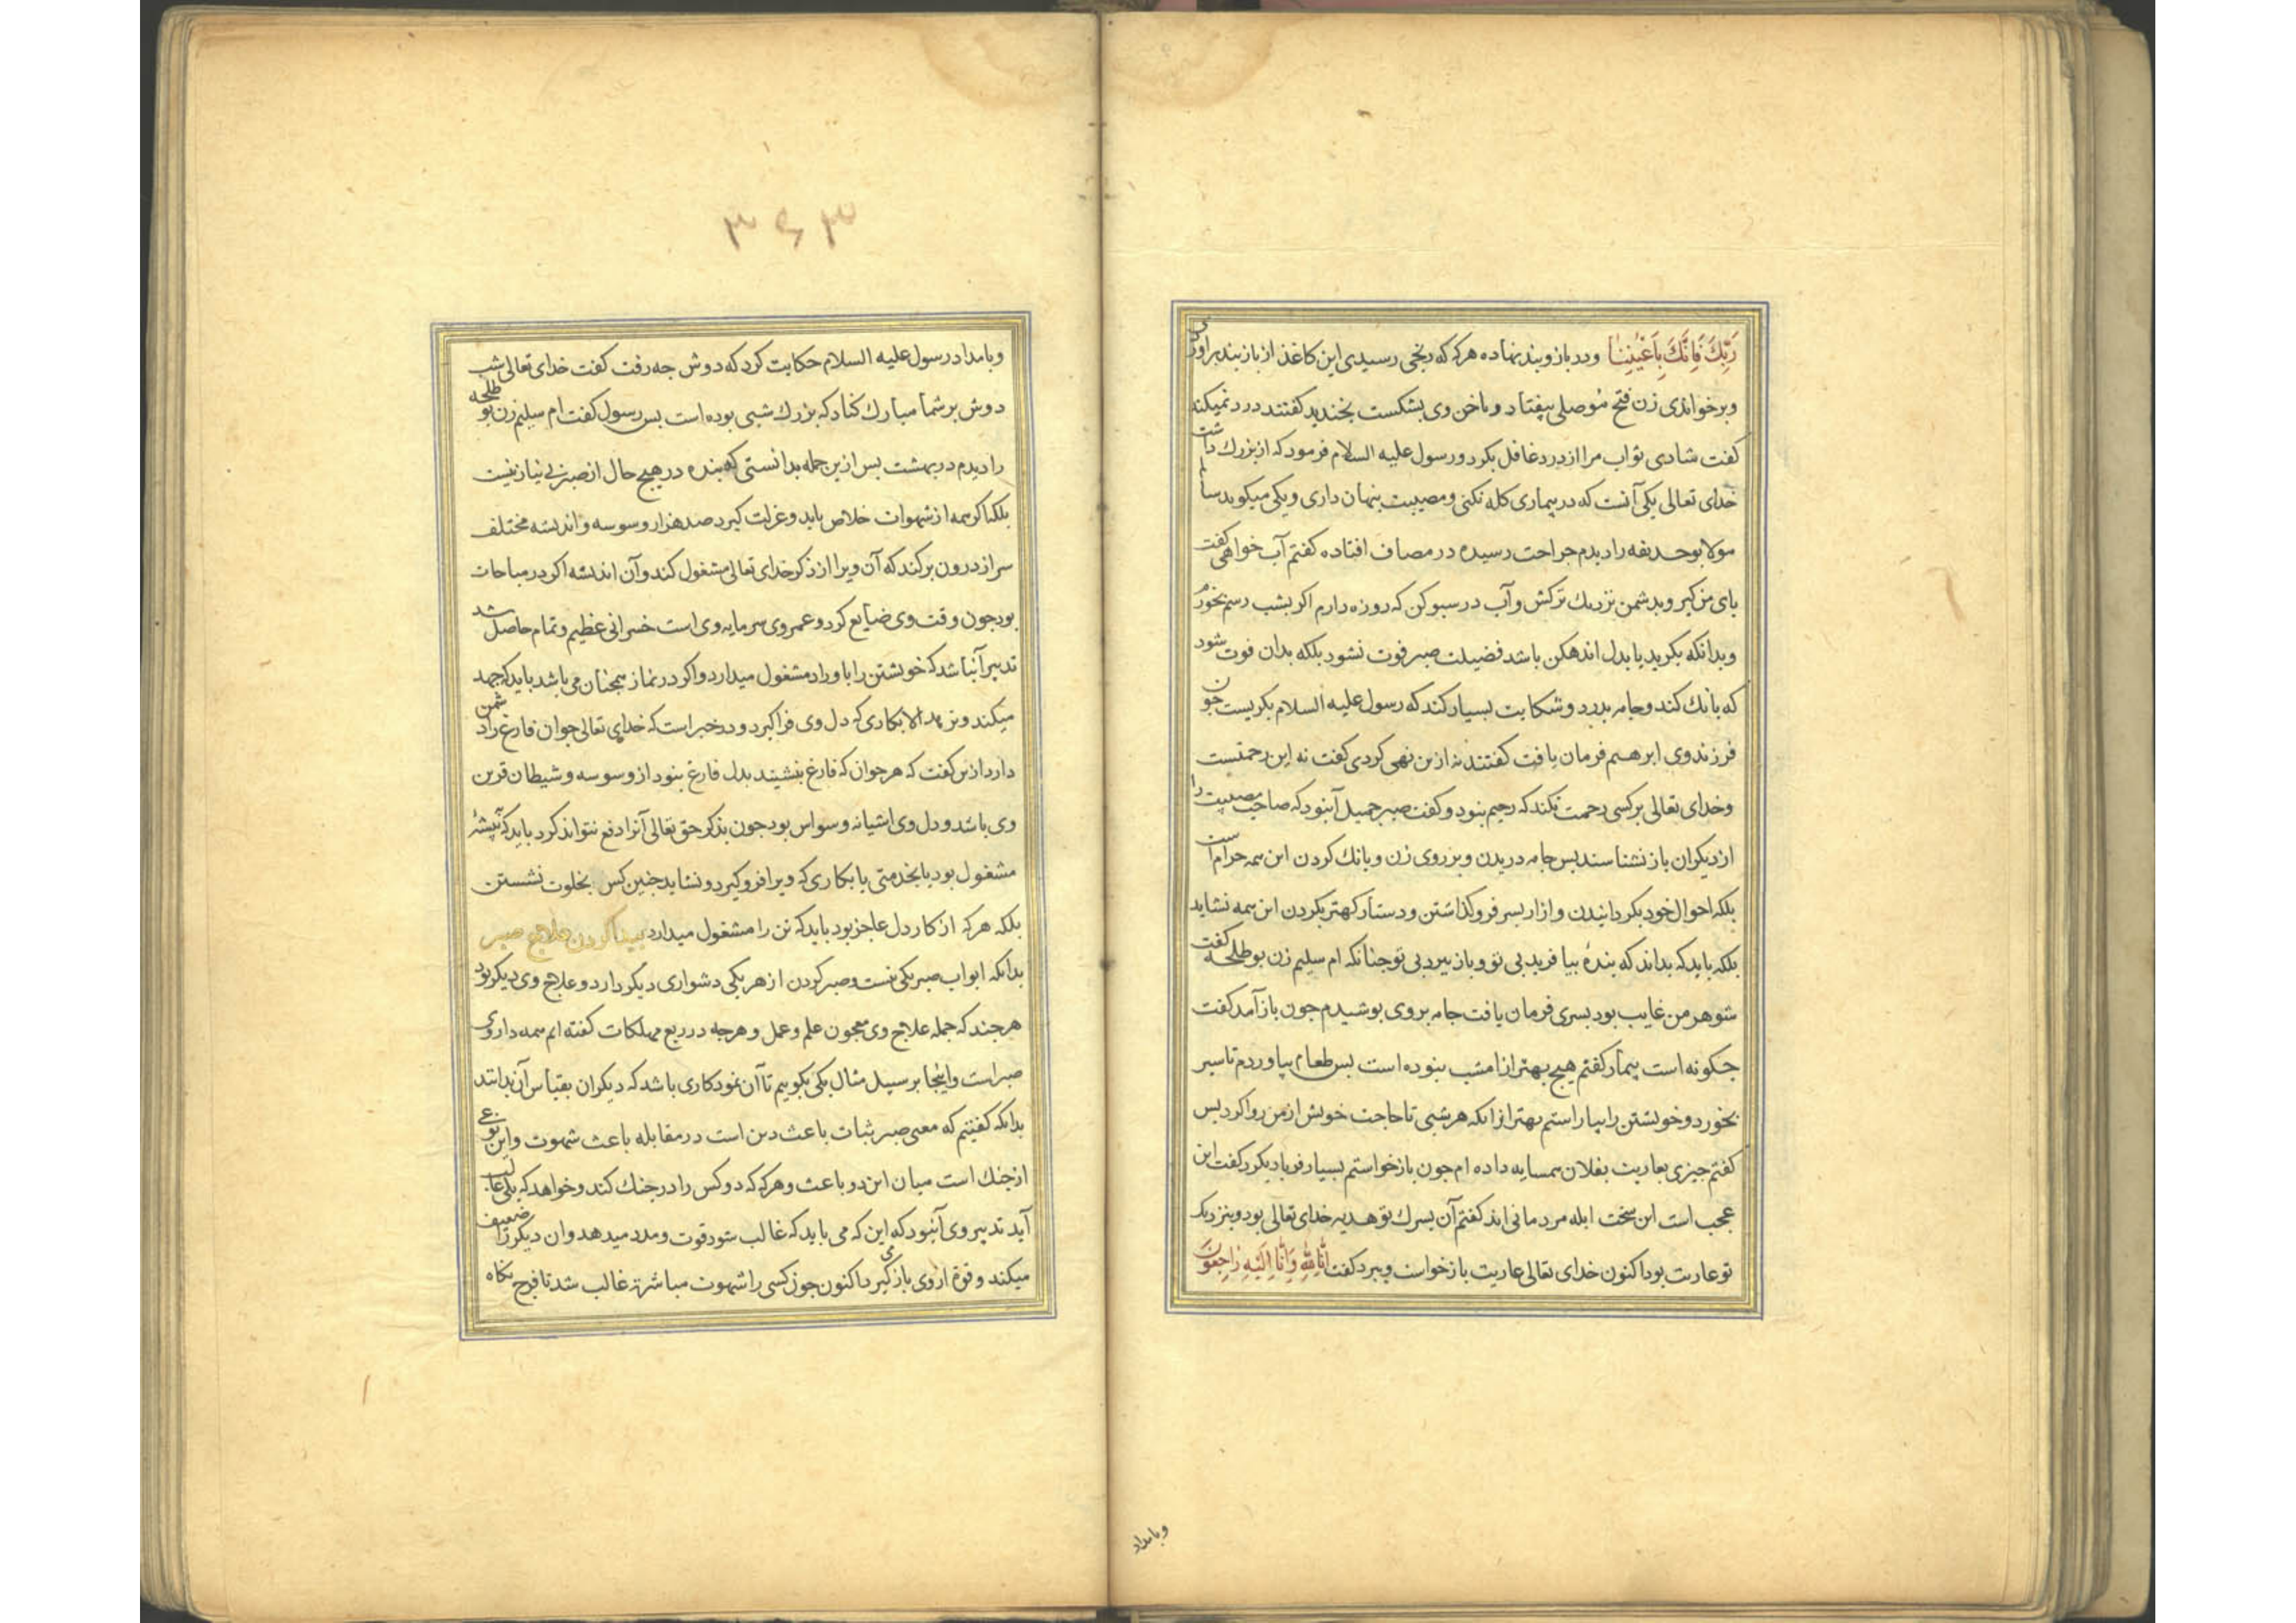 رَبِّكَ فَاِنَّكَ بِاَعْيُنِنَا ودر بازو بند نهاده هرکه که رنجی رسیدی این کاغذ از بازبند براوردی
وبرخواندی زن فتح موصلی بیفتاد و ناخن وی بشکست بخندید کفتند درد نمیکند
کفت شادی ثواب مرا از درد غافل بکرد و رسول علیه السلام فرمود که از بزرك داشت
خدای تعالی یکی آنست که در بیماری کله نکنی و مصیبت پنهان داری و یکی میکوید سالم
مولا بوحدیفه را دیدم جراحت رسیده در مصاف افتاده کفتم آب خواهی کفت
بای من کیر و بدشمن نزدیك ترکش و آب در سبو کن که روزه دارم اکر بشب رسم بخورم
وبدانکه بکرید یا بدل اندهکن باشد فضیلت صبر فوت نشود بلکه بدان فوت شود
که بانك کند و جامه بدرد و شکایت بسیار کند که رسول علیه السلام بکریست جون
فرزند وی ابرهیم فرمان یافت کفتند نه ازین نهی کردی کفت نه این رحمتست
وخدای تعالی بر کسی رحمت نکند که رحیم نبود و کفت صبر جمیل آنبود که صاحب مصیبت را
از دیکران باز نشناسند بس جامه دریدن و بر روی زدن و بانك کردن این همه حرام است
بلکه احوال خود بکردانیدن و ازار بسر فرو کذاشتن و دستار کهتر بکردن این همه نشاید
بلکه باید که بداند که بندهٔ بیافرید بی تو و باز ببرد بی تو جنانکه ام سلیم زن بوطلحه کفت
شوهر من غایب بود بسری فرمان یافت جامه بروی بوشیدم جون باز آمد کفت
جکونه است بیمار کفتم هیج بهتر از امشب نبوده است بس طعام بیاوردم تا سیر
بخورد و خویشتن را بیاراستم بهتر ازانکه هر شبی تا حاجت خویش از من روا کرد بس
کفتم جیزی بعاریت بفلان همسایه داده ام جون باز خواستم بسیار فریاد بکرد کفت این
عجب است این سخت ابله مردمانی اند کفتم آن بسرك تو هدیه خدای تعالی بود و بنزدیك
تو عاریت بود اکنون خدای تعالی عاریت باز خواست و ببرد کفت اِنَّا لِلّٰهِ وَاِنَّا اِلَيْهِ رَاجِعُونَ
وبامداد
۳۶۳
وبامداد رسول علیه السلام حکایت کرد که دوش جه رفت کفت خدای تعالی شب
دوش بر شما مبارك کناد که بزرك شبی بوده است بس رسول کفت ام سلیم زن بوطلحه
را دیدم در بهشت بس ازین جمله بدانستی که بنده در هیج حال از صبر بی نیاز نیست
بلکه اکر همه از شهوات خلاص یابد و عزلت کیرد صد هزار وسوسه و اندیشه مختلف
سر از درون بر کند که آن ویرا از ذکر خدای تعالی مشغول کند و آن اندیشه اکر در مباحات
بود جون وقت وی ضایع کرد و عمر وی سرمایه وی است خسرانی عظیم و تمام حاصل شد
تدبیر آنباشد که خویشتن را باوراد مشغول میدارد و اکر در نماز همجنان می باشد باید که جهد
میکند و نرهد الا بکاری که دل وی فرا کیرد و در خبر است که خدای تعالی جوان فارغ را دشمن
دارد ازین کفت که هر جوان که فارغ بنشیند بدل فارغ نبود از وسوسه و شیطان قرین
وی باشد و دل وی اشیانه وسواس بود جون بذکر حق تعالی آنرا دفع نتواند کرد باید که بیشهٔ
مشغول بود یا بخدمتی یا بکاری که ویرا فرو کیرد و نشاید جنین کس بخلوت نشستن
بلکه هرکه از کار دل عاجز بود باید که تن را مشغول میدارد بیدا کردن علاج صبر
بدانکه ابواب صبر یکی نیست و صبر کردن از هر یکی دشواری دیکر دارد و علاج وی دیکر بود
هرجند که جمله علاج وی معجون علم و عمل و هرجه در ربع مهلکات کفته ایم همه داروی
صبر است و اینجا بر سبیل مثال یکی بکوییم تا آن نمودکاری باشد که دیکران بقیاس آن بدانند
بدانکه کفتیم که معنی صبر ثبات باعث دین است در مقابله باعث شهوت و این نوعی
از جنك است میان این دو باعث و هرکه که دو کس را در جنك کند و خواهد که یکی غالب
آید تدبیر وی آنبود که این که می باید که غالب شود قوت و مدد میدهد و ان دیکر را ضعیف
میکند و قوة از وی باز می کیرد اکنون جون کسی را شهوت مباشرة غالب شد تا فرج نکاه